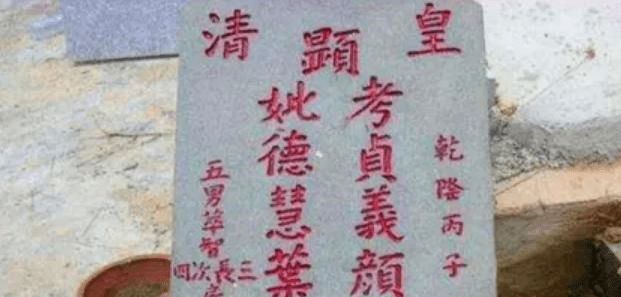 皇清
顯
乾隆丙子
考貞義顏
妣德慧葉
五男華智
三長次四